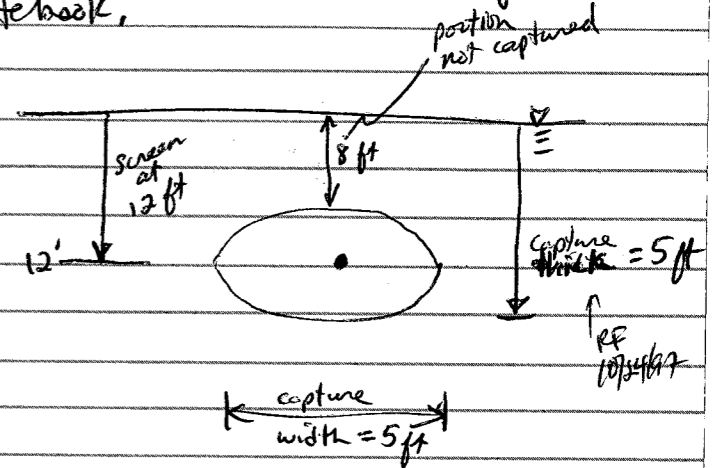 tebook.
portion
not captured
screen
at
12 ft
8 ft
12'
capture
= 5 ft
RF
capture
width = 5 ft